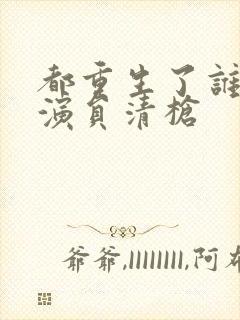 都重生了誰
演員清槍
爺爺,llllllll,阿布